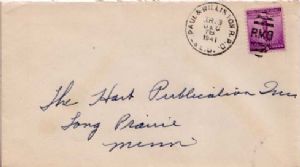 ST. PAUL & WILLISTON R.P.O.
TR. 3
DEC
26
1941
The Hart Publication Inc
Long Prairie
Minn